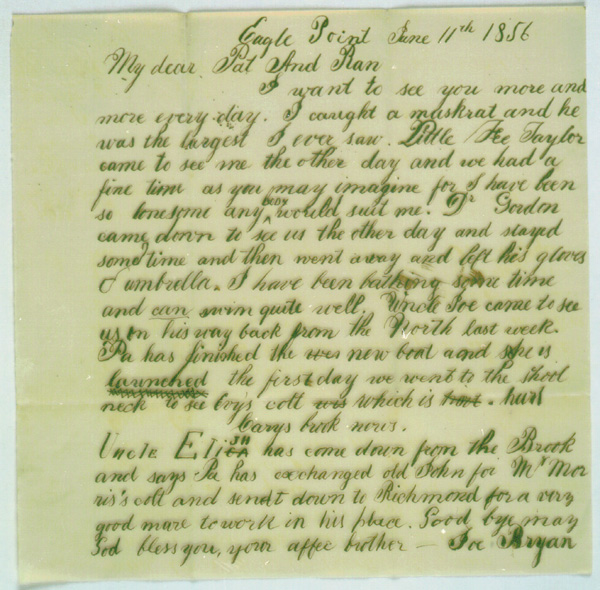 Eagle Point June 11th 1856
My dear Pat And Ran
I want to see you more and
more every day. I caught a muskrat and he
was the largest I ever saw. Little Fee Taylor
came to see me the other day and we had a
fine time as you may imagine for I have been
so lonesome any body would suit me. Dr Gordon
came down to see us the other day and stayed
some time and then went away and left his gloves
& umbrella. I have been bathing some time
and can swim quite well. Uncle Joe came to see
us on his way back from the North last week.
Pa has finished the new boat and she is
launched the first day we went to the
neck to see colt which is
Carys book now.
Uncle Eli has come down from the Brook
and says Pa has exchanged old John for Mr Mor
ris's colt and sendt down to Richmond for a very
good mare to work in his place. Good bye may
God bless you, your affec brother — Joe Bryan